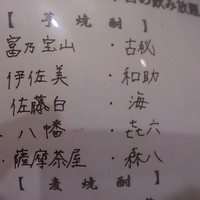 日の飲み放題
【芋焼酎】
富乃宝山 ・古秘
伊佐美 ・和助
佐藤白 ・海
・八幡 ・㐂六
・薩摩茶屋 ・森八
【麦焼酎】